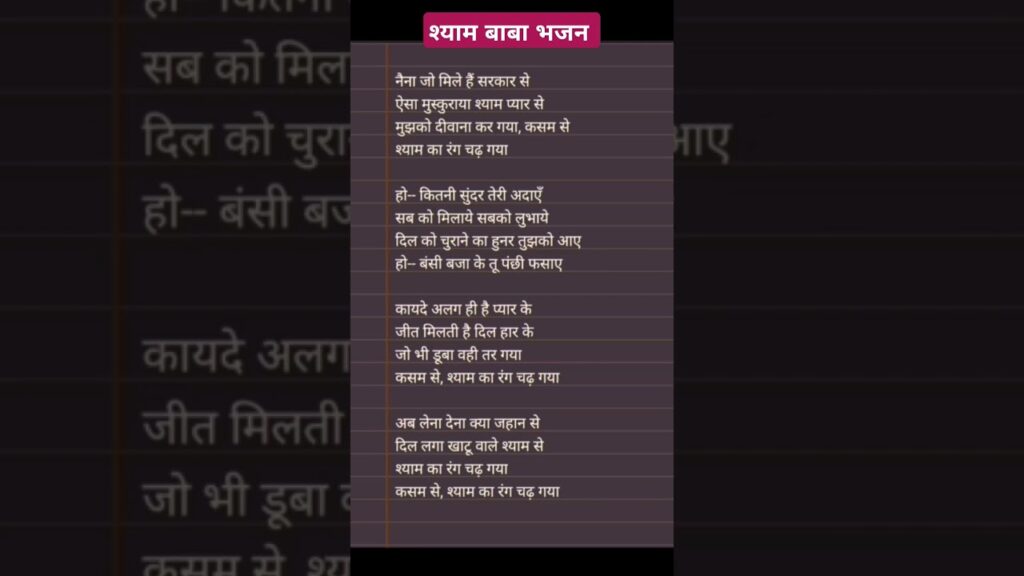 श्याम बाबा भजन
नैना जो मिले हैं सरकार से
ऐसा मुस्कुराया श्याम प्यार से
मुझको दीवाना कर गया, कसम से
श्याम का रंग चढ़ गया
हो-- कितनी सुंदर तेरी अदाएँ
सब को मिलाये सबको लुभाये
दिल को चुराने का हुनर तुझको आए
हो-- बंसी बजा के तू पंछी फसाए
कायदे अलग ही है प्यार के
जीत मिलती है दिल हार के
जो भी डूबा वही तर गया
कसम से, श्याम का रंग चढ़ गया
अब लेना देना क्या जहान से
दिल लगा खाटू वाले श्याम से
श्याम का रंग चढ़ गया
कसम से, श्याम का रंग चढ़ गया